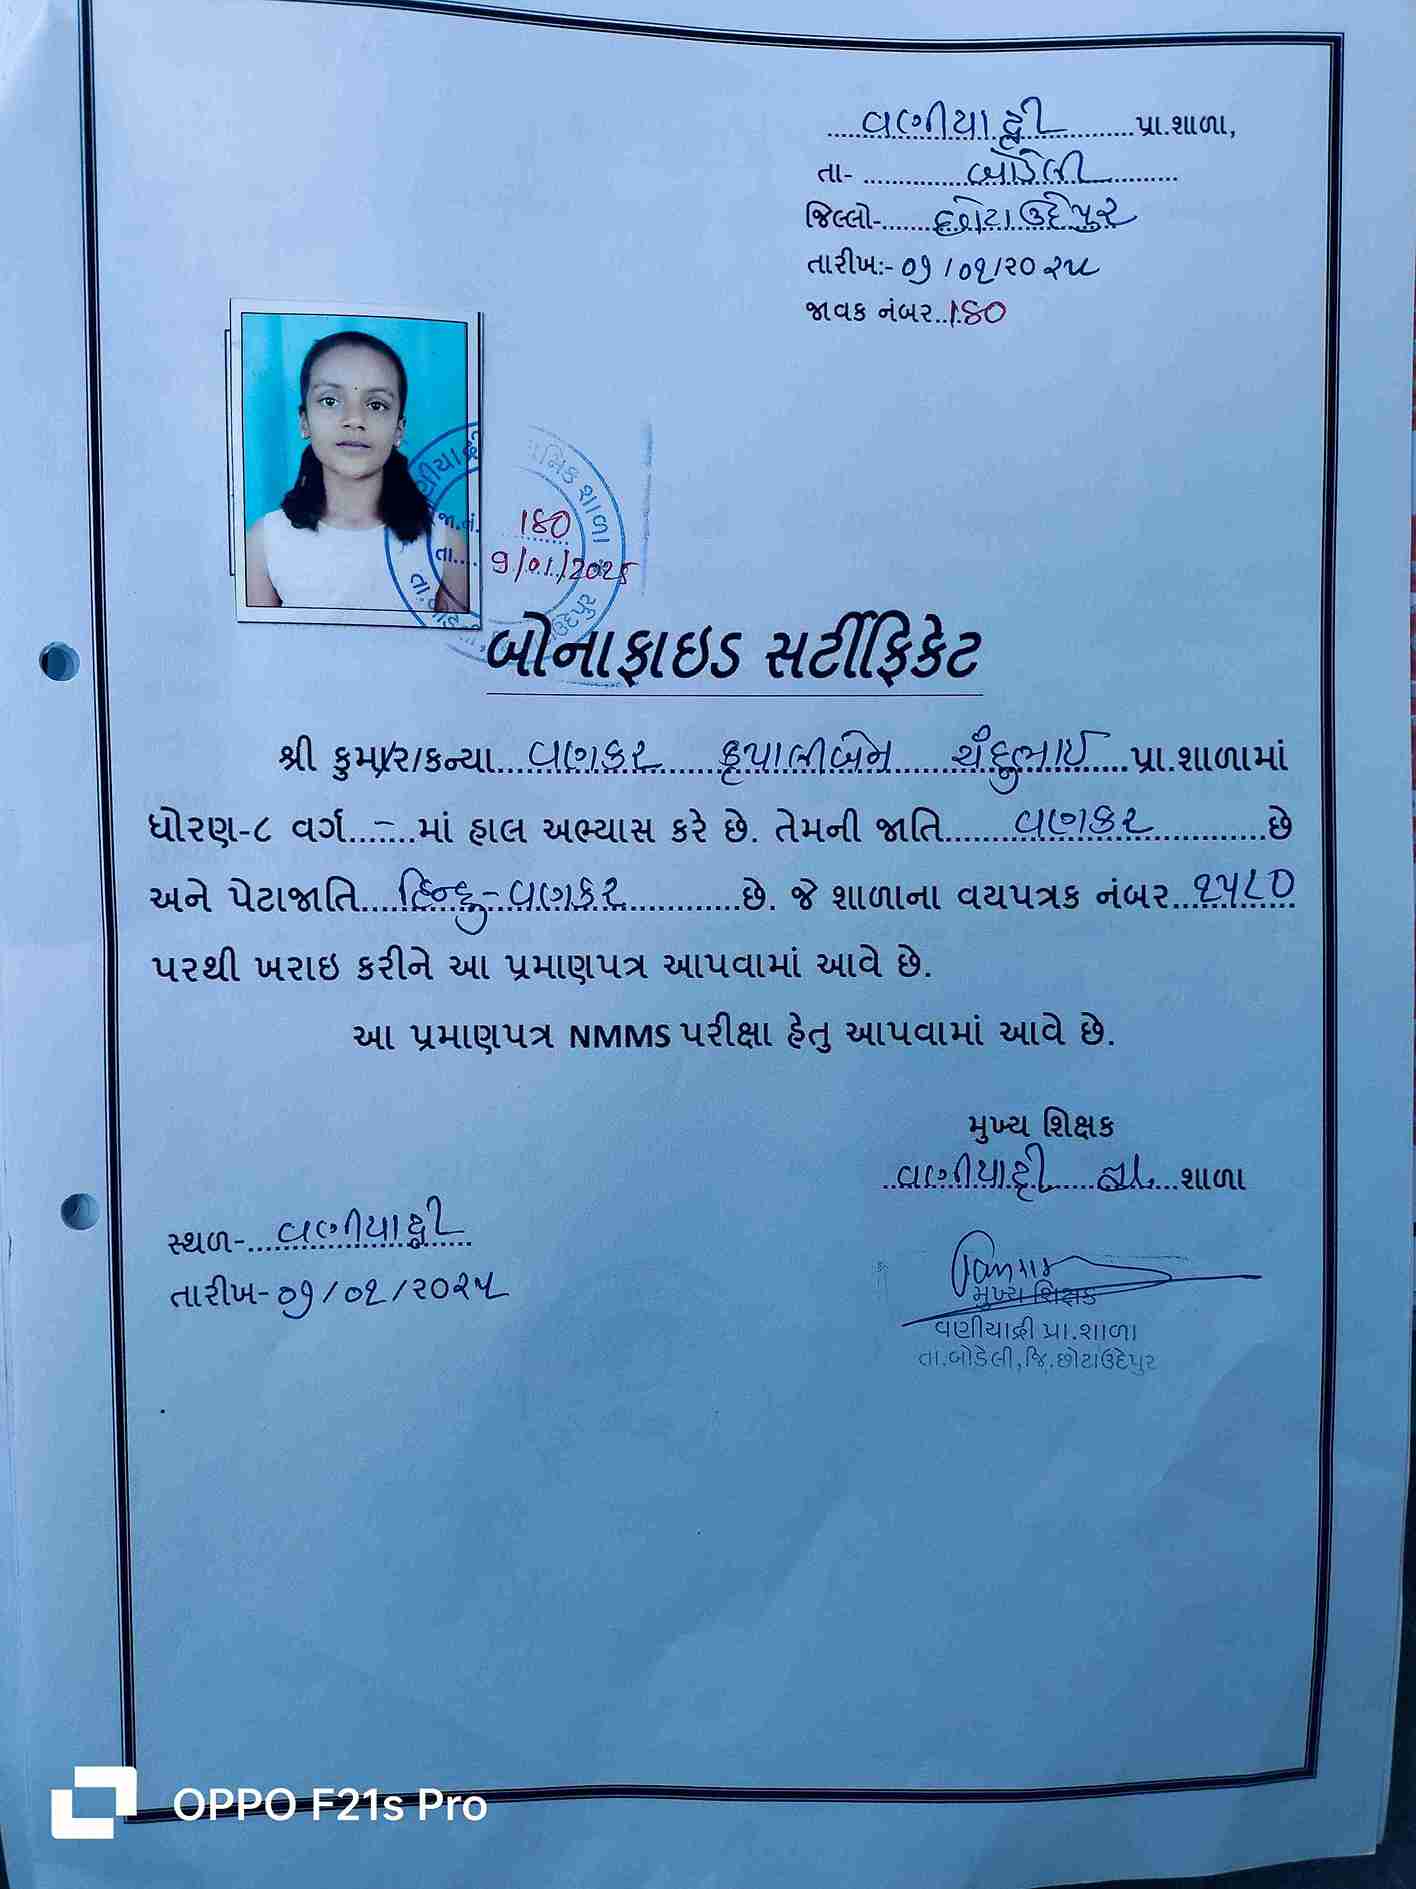 વણીયાદ્રી પ્રા.શાળા,
તા- બોડેલી
જિલ્લો- છોટાઉદેપુર
તારીખ:- ૦૧/૦૧/૨૦૨૫
જાવક નંબર..180
180
તા.... 9/01/2025
બોનાફાઇડ સર્ટીફિકેટ
શ્રી કુમાર/કન્યા વણકર કૃપાલીબેન ચંદુભાઈ પ્રા.શાળામાં
ધોરણ-૮ વર્ગ...-...માં હાલ અભ્યાસ કરે છે. તેમની જાતિ વણકર છે
અને પેટાજાતિ હિન્દુ-વણકર છે. જે શાળાના વયપત્રક નંબર ૨૫૮૦
પરથી ખરાઇ કરીને આ પ્રમાણપત્ર આપવામાં આવે છે.
આ પ્રમાણપત્ર NMMS પરીક્ષા હેતુ આપવામાં આવે છે.
મુખ્ય શિક્ષક
વણીયાદ્રી પ્રા. શાળા
સ્થળ- વણીયાદ્રી
તારીખ- ૦૧/૦૧/૨૦૨૫
મુખ્ય શિક્ષક
વણીયાદ્રી પ્રા.શાળા
તા.બોડેલી,જિ.છોટાઉદેપુર
OPPO F21s Pro